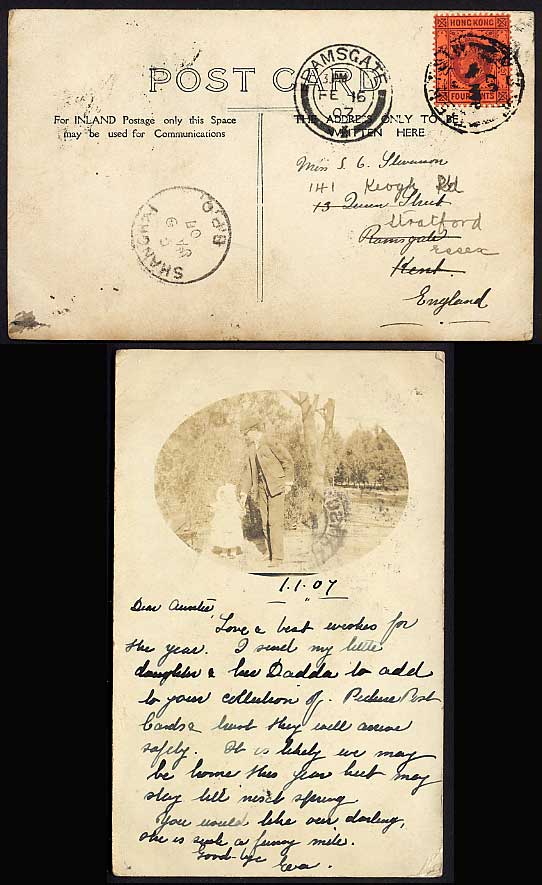 POST CARD
HONG KONG
FOUR CENTS
RAMSGATE
3 PM
FE 16
07
For INLAND Postage only this Space
may be used for Communications
THE ADDRESS ONLY TO BE
WRITTEN HERE
Miss S. C. Stevenson
141 Keogh Rd
13 Queen Street
Stratford
Ramsgate
Essex
Kent
England
SHANGHAI
B.P.O.
07
1.1.07
Dear Auntie
Love & best wishes for
the year. I send my little
daughter & her Dadda to add
to your collection of Picture Post
Cards & trust they will arrive
safely. It is likely we may
be home this year but may
stay till next spring
You would like our darling,
she is such a funny mite.
Good-bye
Eva.